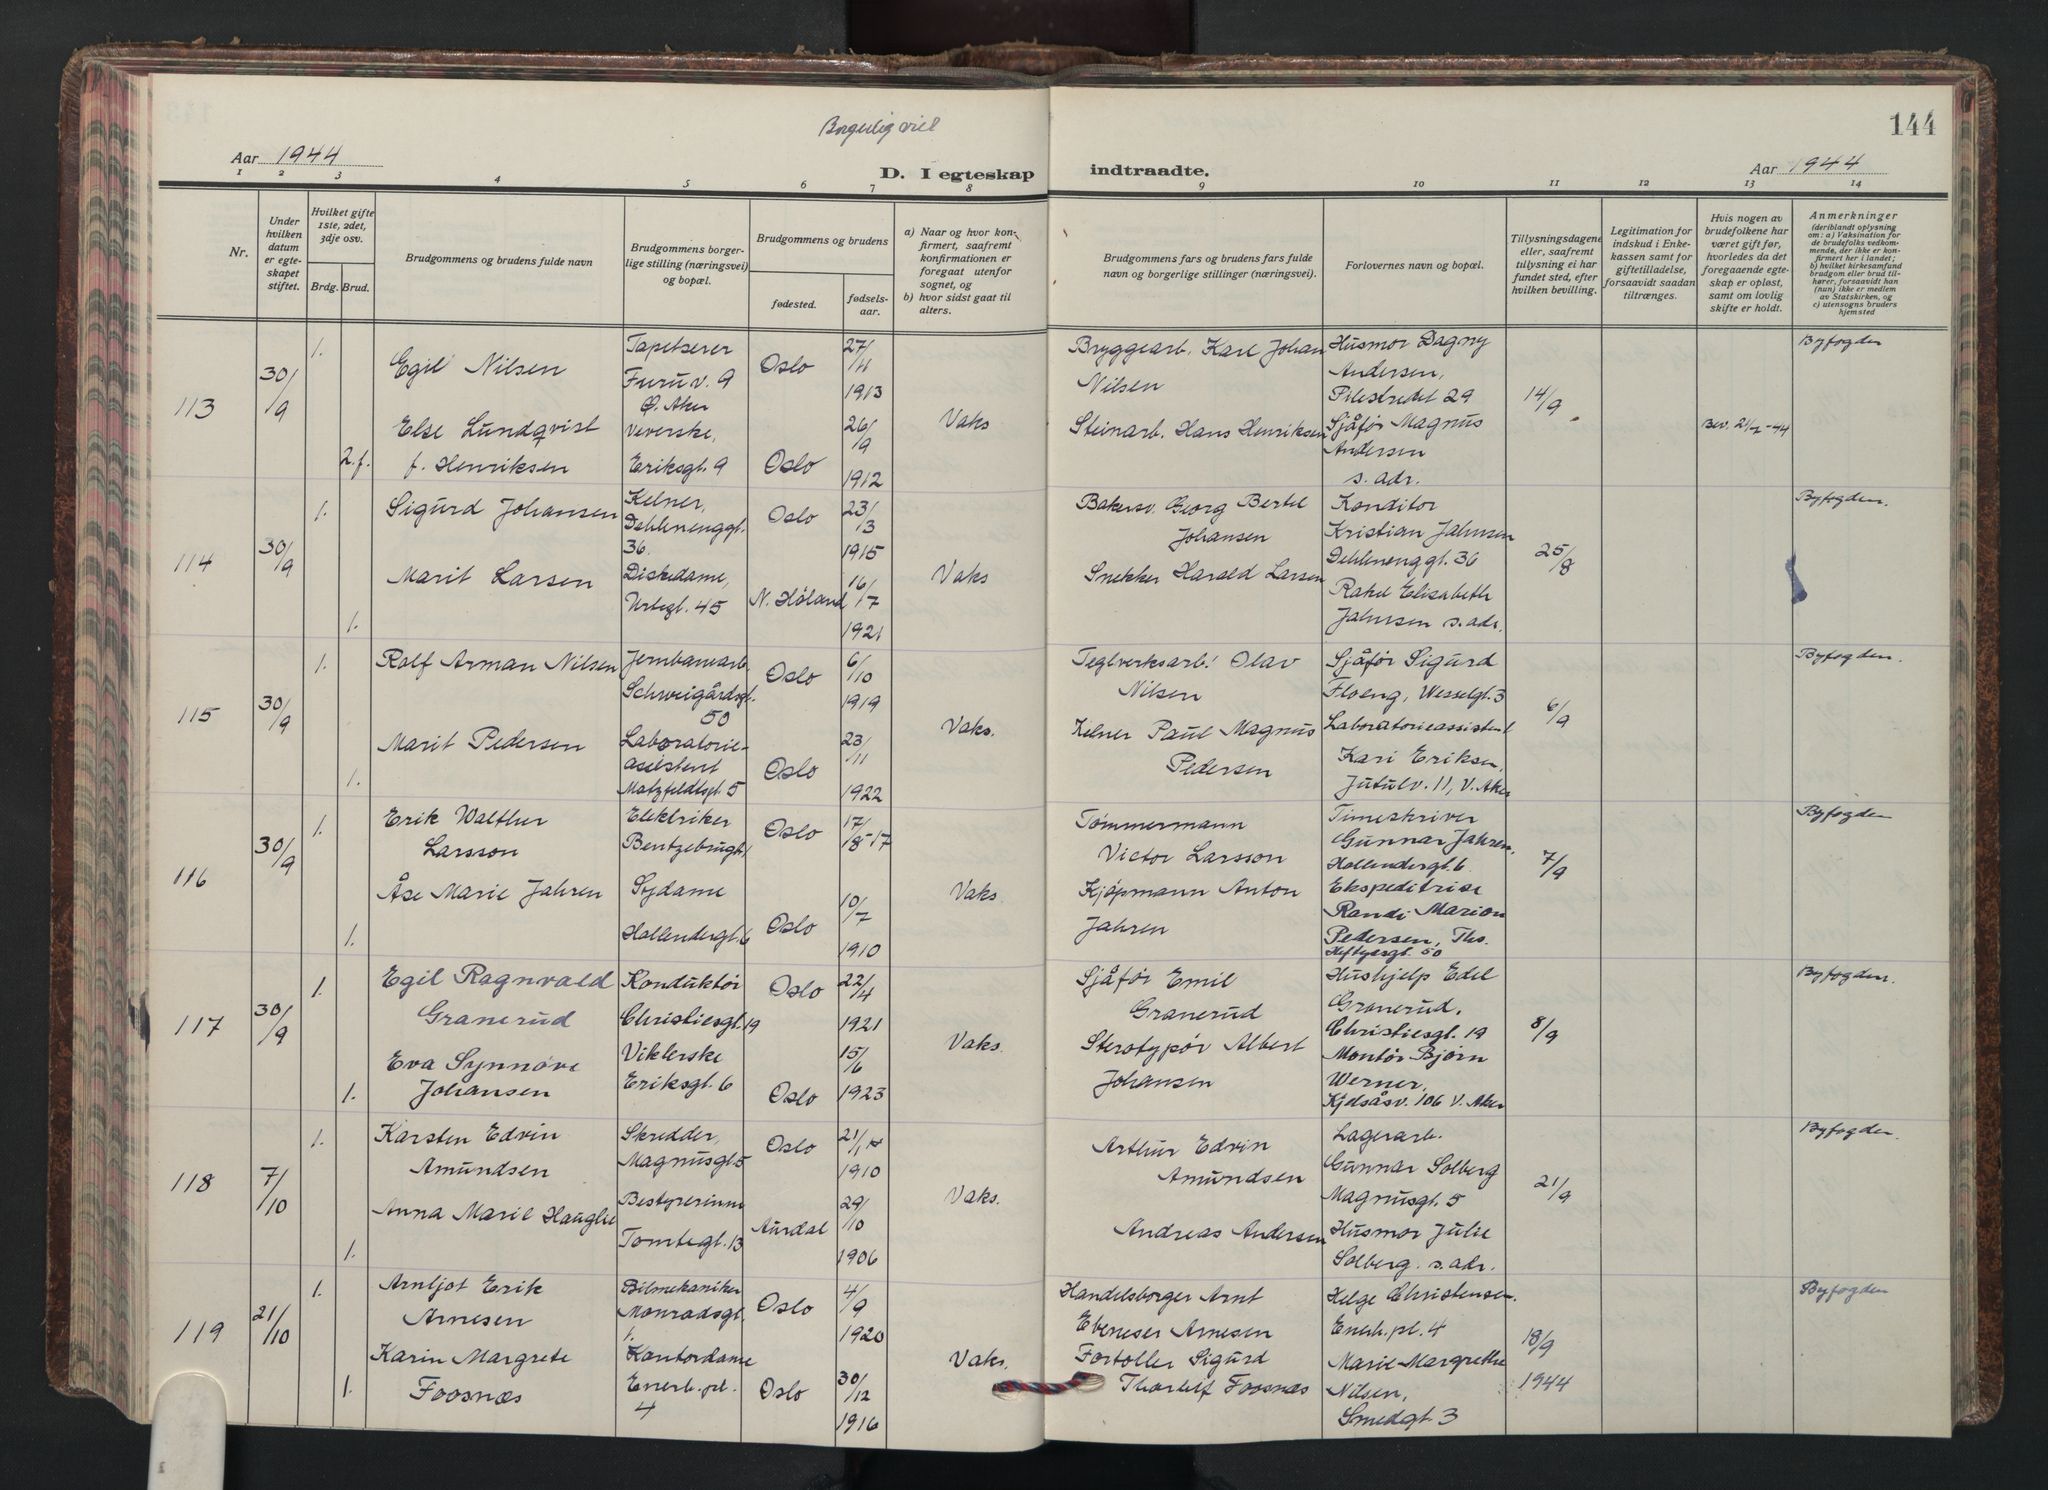 Borgerlig viet
144
Aar 1944
D. I egteskap indtraadte.
Aar 1944
1 2 3 4 5 6 7 8 9 10 11 12 13 14
Nr.
Under hvilken datum er egteskapet stiftet.
Hvilket gifte 1ste, 2det, 3dje osv.
Brdg. Brud.
Brudgommens og brudens fulde navn
Brudgommens borgerlige stilling (næringsvei) og bopæl.
Brudgommens og brudens
fødested.
fødselsaar.
a) Naar og hvor konfirmert, saafremt konfirmationen er foregaat utenfor sognet, og
b) hvor sidst gaat til alters.
Brudgommens fars og brudens fars fulde navn og borgerlige stillinger (næringsvei).
Forlovernes navn og bopæl.
Tillysningsdagene eller, saafremt tillysning ei har fundet sted, efter hvilken bevilling.
Legitimation for indskud i Enkekassen samt for giftetilladelse, forsaavidt saadan tiltrænges.
Hvis nogen av brudefolkene har været gift før, hvorledes da det foregaaende egteskap er opløst, samt om lovlig skifte er holdt.
Anmerkninger (deriblandt oplysning om: a) Vaksination for de brudefolks vedkommende, der ikke er konfirmert her i landet; b) hvilket kirkesamfund brudgom eller brud tilhører, forsaavidt han (hun) ikke er medlem av Statskirken, og c) utensogns bruders hjemsted
113
30/9
1.
Egil Nilsen
Tapetserer
Furuv. 9
Ø. Aker
Oslo
27/11
1913
Else Lundqvist
f. Henriksen
2. f.
Veverske,
Eriksgt. 9
Oslo
26/9
1912
Vaks
Bryggearb. Karl Johan
Nilsen
Steinarb. Hans Henriksen
Husmor Dagny
Andersen,
Pilestredet 29
Sjåfør Magnus
Andersen
s. adr.
14/9
Byfogden
114
30/9
1.
Sigurd Johansen
Kelner,
Dehlenenggt.
36.
Oslo
23/3
1915
Marit Larsen
1.
Diskedame,
Urtegt. 45
N. Høland
16/7
1921
Vaks
Bakersv. Georg Bertel
Johansen
Snekker Harald Larsen
Konditor
Kristian Jahnsen
Dehlenenggt. 36
Rakel Elisabeth
Jahnsen s. adr.
25/8
Byfogden.
115
30/9
1.
Rolf Arman Nilsen
Jernbanearb.
Schweigårdsgt.
50
Oslo
6/10
1919
Marit Pedersen
1.
Laboratorie-
assistent
Motzfeldtsgt. 5
Oslo
23/11
1922
Vaks.
Teglverksarb. Olav
Nilsen
Kelner Paul Magnus
Pedersen
Sjåfør Sigurd
Floeng, Wesselgt. 3
Laboratorieassistent
Kari Eriksen,
Jutulv. 11, V. Aker
6/9
Byfogden.
116
30/9
1.
Erik Walther
Larsson
Elektriker
Bentzebrugt.
Oslo
17/8-17
Åse Marie Jahren
1.
Sydame
Hollendergt. 6
Oslo
10/7
1910
Vaks.
Tømmermann
Victor Larsson
Kjøpmann Anton
Jahren
Timeskriver
Gunnar Jahren,
Hollendergt. 6
Ekspeditrise
Randi Marion
Pedersen, Ths.
Heftyesgt. 50
7/9
Byfogden
117
30/9
1.
Egil Ragnvald
Granerud
Konduktør
Christiesgt. 19
Oslo
22/4
1921
Eva Synnøve
Johansen
1.
Viklerske
Eriksgt. 6
Oslo
15/6
1923
Vaks.
Sjåfør Emil
Granerud
Sterotypør Albert
Johansen
Hushjelp Edel
Granerud,
Christiesgt. 19
Montør Bjørn
Werner,
Kjelsåsv. 106 V. Aker
8/9
Byfogden.
118
7/10
1.
Karsten Edvin
Amundsen
Skredder,
Magnusgt. 5
Oslo
1910
Anna Marie Hauglie
1.
Bestyrerinne
Tomtegt. 13
Aurdal
29/10
1906
Vaks.
Arthur Edvin
Amundsen
Andreas Andersen
Lagerarb.
Gunnar Solberg
Magnusgt. 5
Husmor Julie
Solberg. s. adr.
21/9
Byfogden.
119
21/10
1.
Arnljot Erik
Arnesen
Bilmekaniker
Monradsgt.
1.
Oslo
4/9
1920
Karin Margrete
Foosnæs
1.
Kontordame
Enerh. pl.
4
Oslo
30/12
1916
Vaks.
Handelsborger Arnt
Ebeneser Arnesen
Fortoller Sigurd
Thorleif Foosnæs
Helge Christensen.
Enerh. pl. 4
Marie Margrethe
Nilsen,
Smedgt. 3
18/9
1944
Byfogden